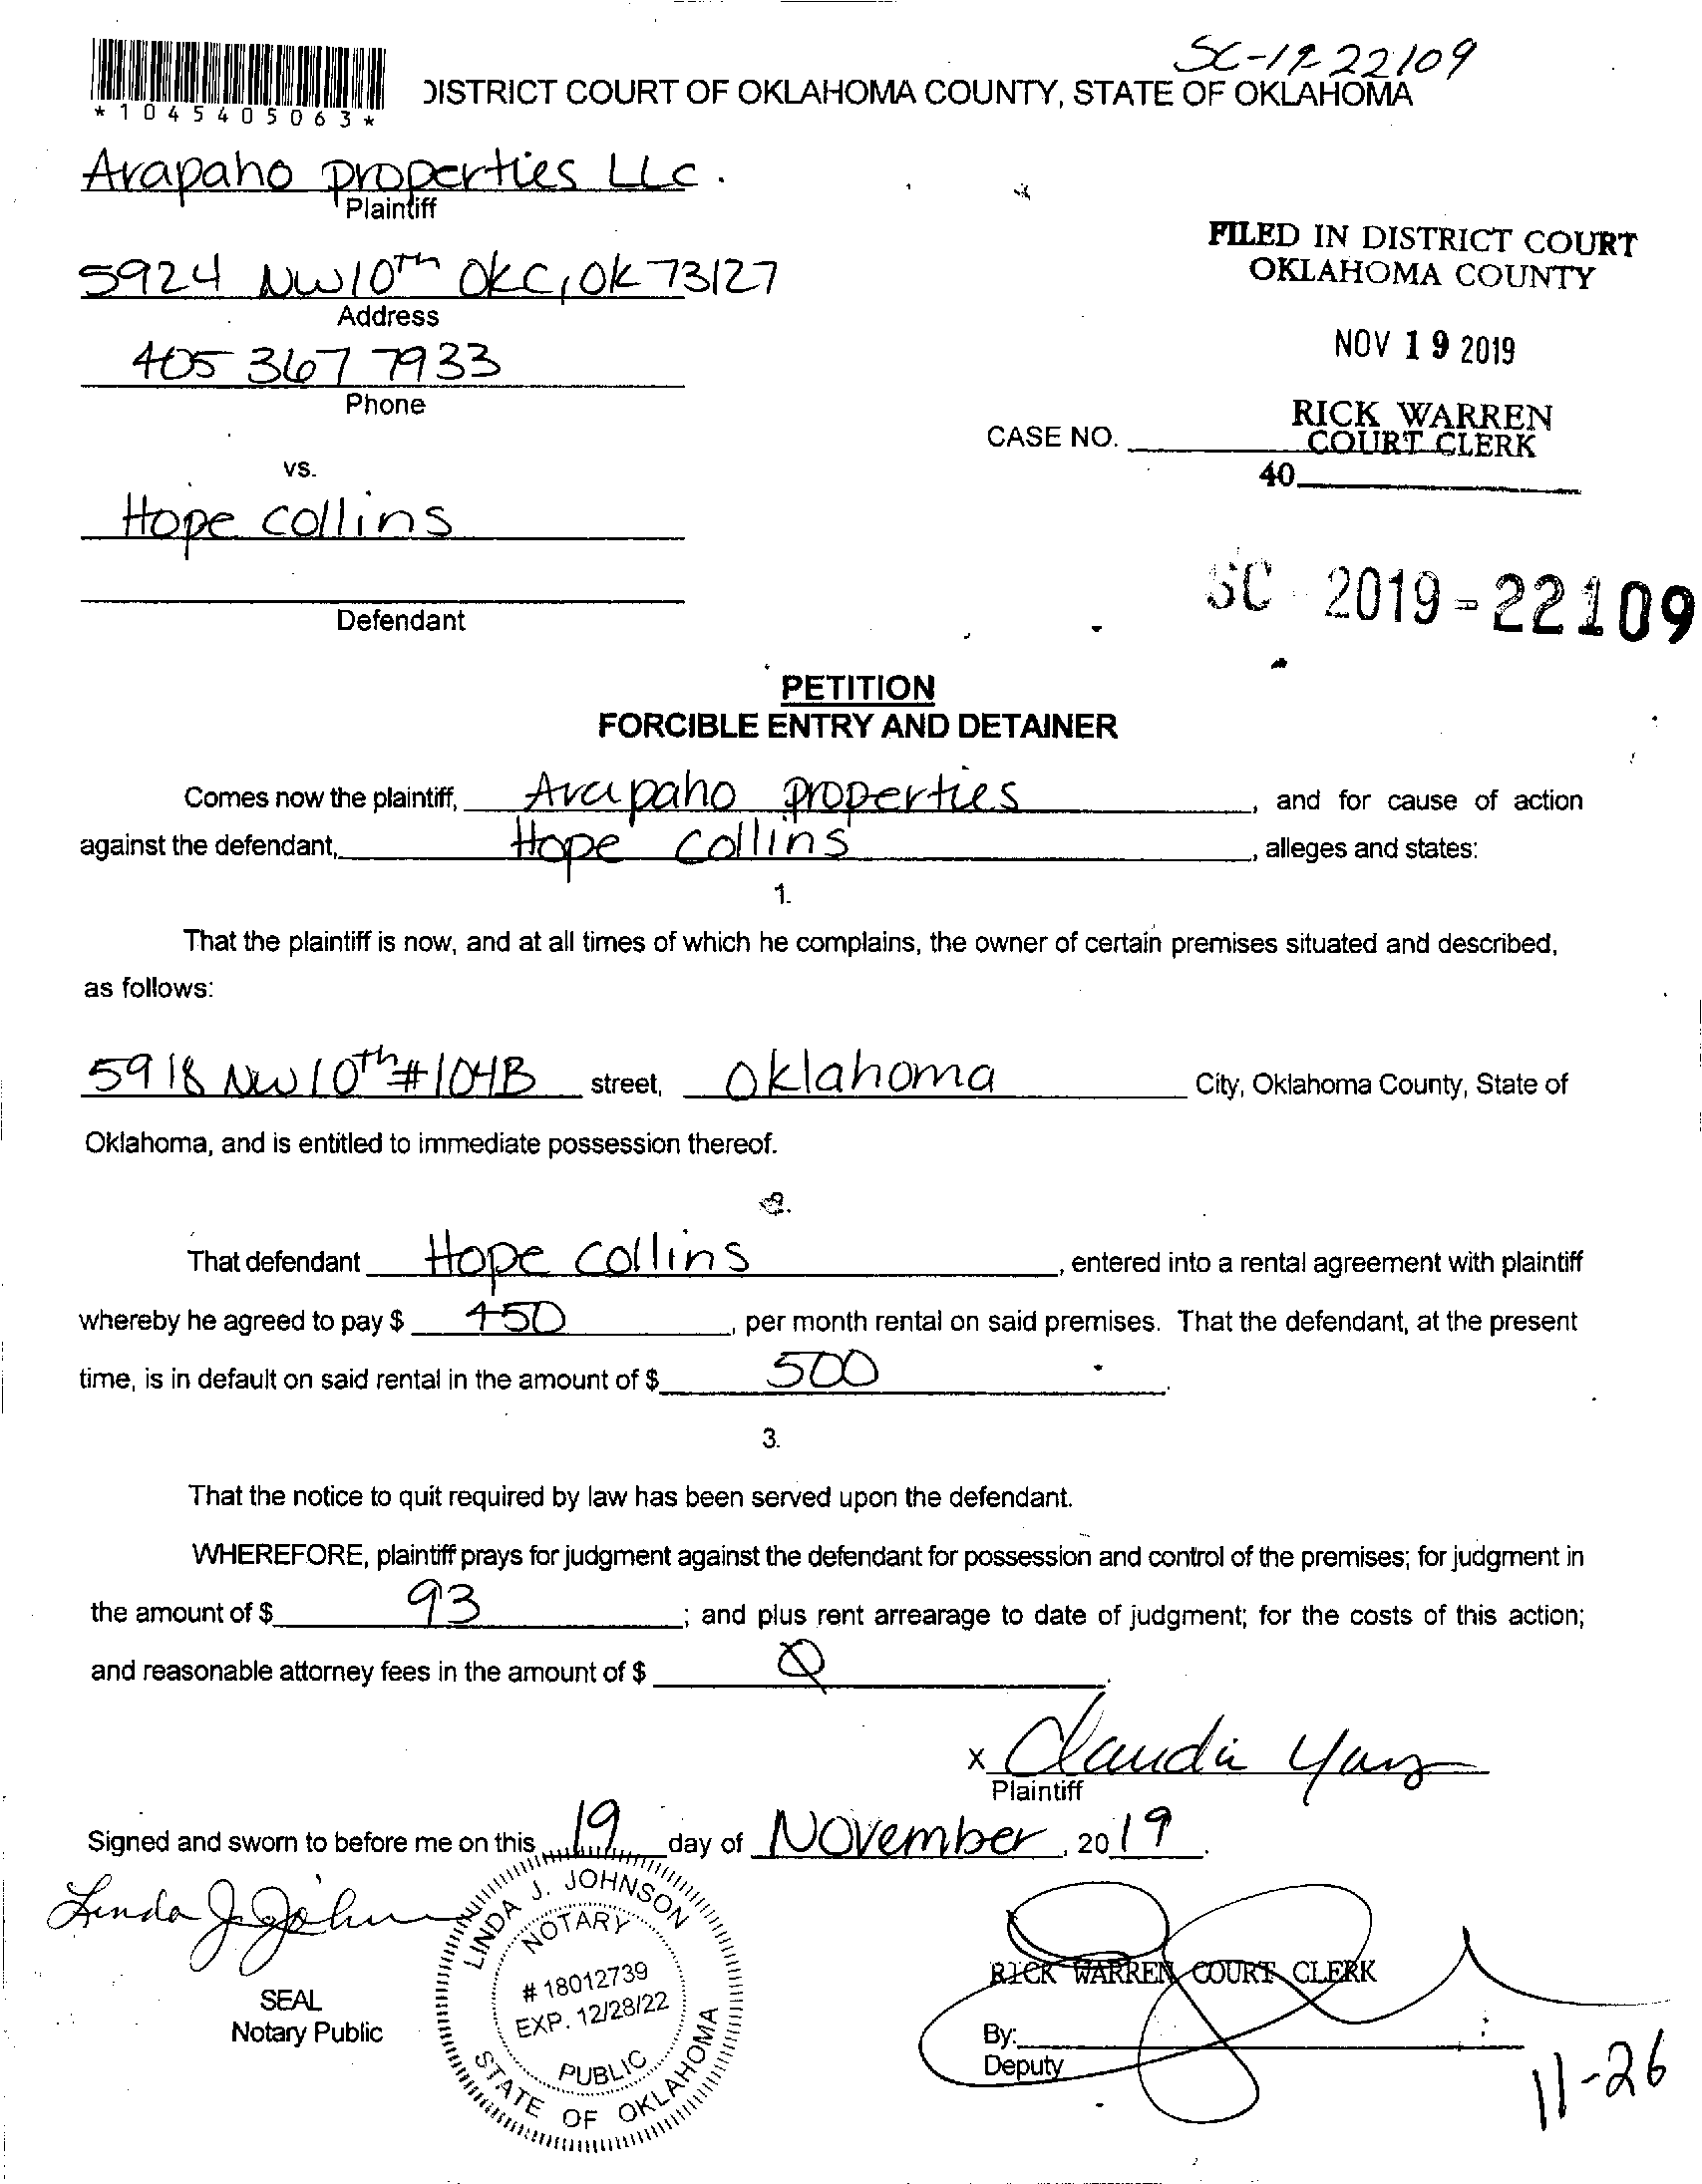 SC-19-22109
*1045405063*
DISTRICT COURT OF OKLAHOMA COUNTY, STATE OF OKLAHOMA
Arapaho properties LLC.
Plaintiff
5924 NW10Th OKC, OK 73127
Address
405 367 7933
Phone
FILED IN DISTRICT COURT
OKLAHOMA COUNTY
NOV 19 2019
RICK WARREN
COURT CLERK
CASE NO.
40
vs.
Hope collins
Defendant
SC 2019-22109
PETITION
FORCIBLE ENTRY AND DETAINER
Comes now the plaintiff, Arapaho properties, and for cause of action
against the defendant, Hope collins, alleges and states:
1.
That the plaintiff is now, and at all times of which he complains, the owner of certain premises situated and described,
as follows:
5918 NW10th #104B street, Oklahoma City, Oklahoma County, State of
Oklahoma, and is entitled to immediate possession thereof.
2.
That defendant Hope collins, entered into a rental agreement with plaintiff
whereby he agreed to pay $ 450, per month rental on said premises. That the defendant, at the present
time, is in default on said rental in the amount of $ 500.
3.
That the notice to quit required by law has been served upon the defendant.
WHEREFORE, plaintiff prays for judgment against the defendant for possession and control of the premises; for judgment in
the amount of $ 93; and plus rent arrearage to date of judgment; for the costs of this action;
and reasonable attorney fees in the amount of $ 0.
x Claudia
Plaintiff
Signed and sworn to before me on this 19 day of November, 2019.
Linda J. Johnson
SEAL
Notary Public
LINDA J. JOHNSON
NOTARY
# 18012739
EXP. 12/28/22
PUBLIC
STATE OF OKLAHOMA
RICK WARREN COURT CLERK
By:
Deputy
11-26